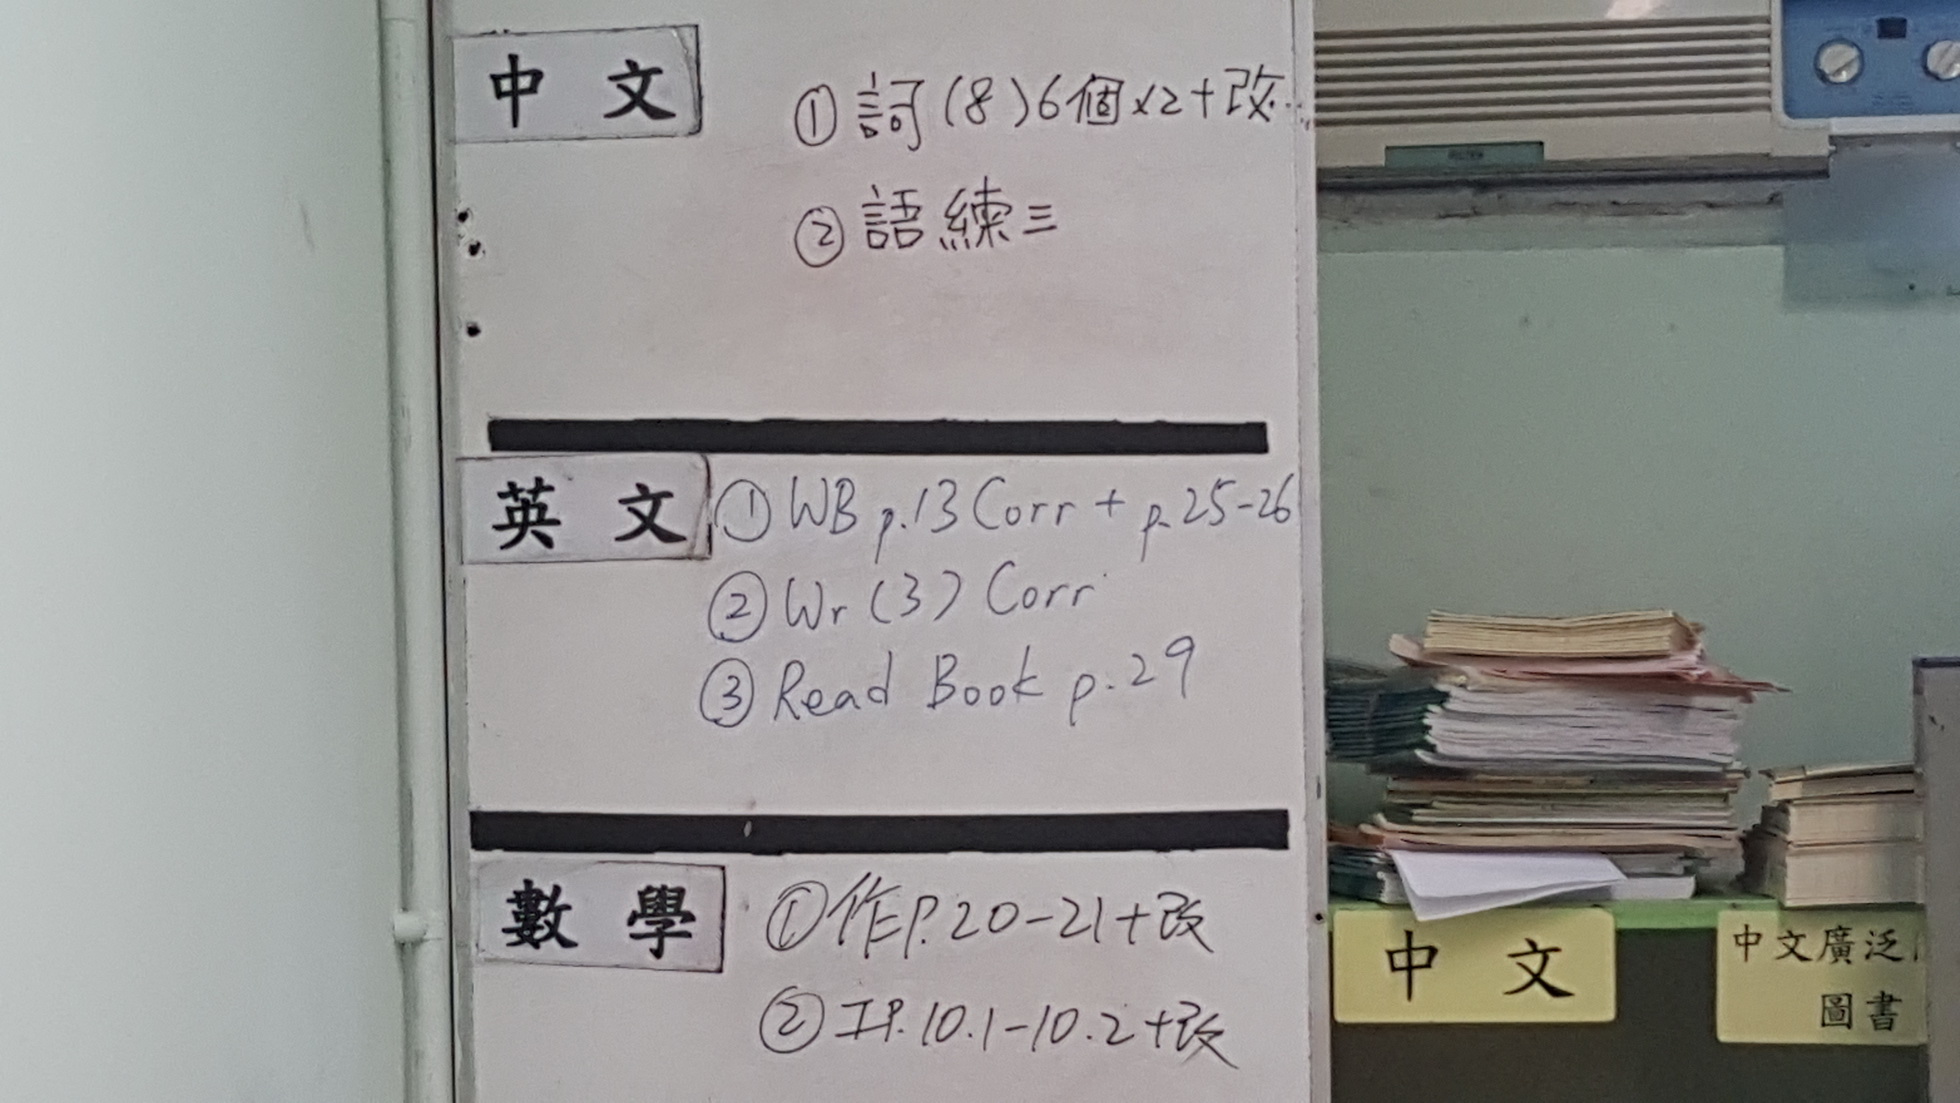 中文
① 詞(8)6個x2+改
② 語練三
英文
① WB p.13 Corr + p.25-26
② Wr (3) Corr
③ Read Book p.29
數學
① 作P.20-21+改
② 工P.10.1-10.2+改
中文
中文廣泛
圖書